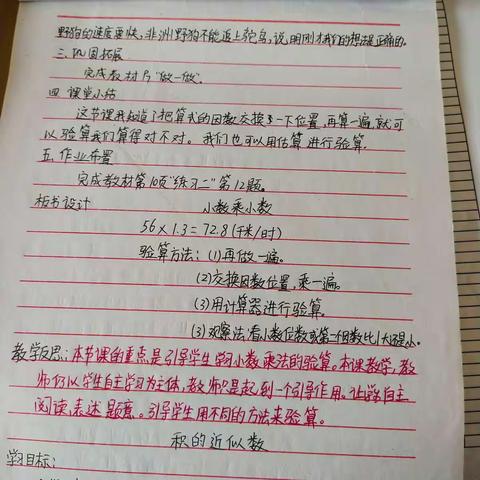 野狗的速度更快,非洲野狗不能追上鸵鸟,说明刚才我们的想法是正确的。
三、巩固拓展
完成教材P5"做一做"。
四 课堂小结
这节课我知道了把算式的因数交换了一下位置,再算一遍,就可
以验算我们算得对不对。我们也可以用估算进行验算。
五.作业布置
完成教材第10页"练习二"第12题。
板书设计 小数乘小数
56×1.3=72.8(千米/时)
验算方法:(1)再做一遍。
(2)交换因数位置,乘一遍。
(3)用计算器进行验算。
(3)观察法:看小数位数或第一个因数比1大还是小。
教学反思:本节课的重点是引导学生学习小数乘法的验算。本课教学,教
师仍以学生自主学习为主体,教师只是起到一个引导作用。让学生自主
阅读,表述题意。引导学生用不同的方法来验算。
积的近似数
学习目标: